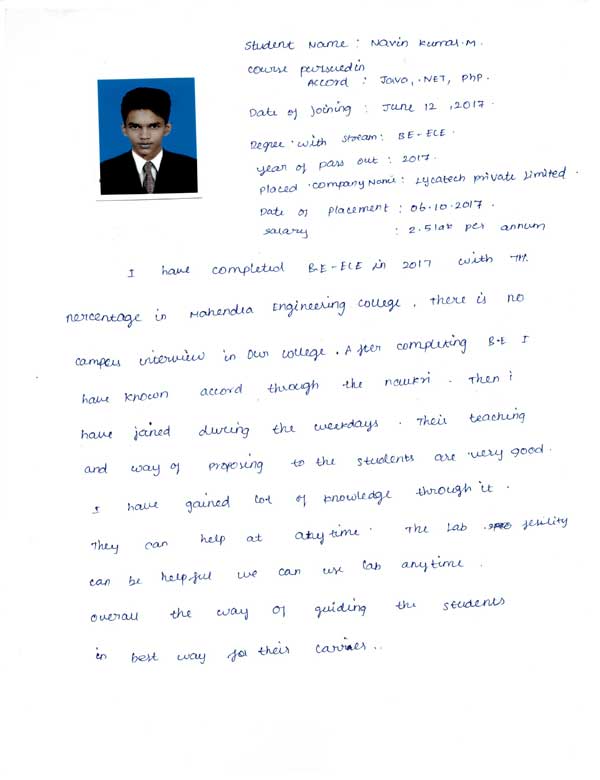 Student Name : Navin Kumar.M.
Course persuedin
Accord : Java, .NET, PhP.
Date of Joining : June 12 , 2017.
Degree with Stream : BE-ECE.
Year of pass out : 2017.
Placed Company Name : Lycatech private Limited.
Date of Placement : 06.10.2017.
Salary : 2.5lak per annum
I have completed B.E-ECE in 2017 with 74.
Percentage in Mahendra Engineering College. There is no
campus interview in Our college. After completing B.E I
have known accord through the naukri. Then i
have joined during the weekdays. Their teaching
and way of proposing to the students are very good.
I have gained lot of knowledge through it.
They can help at anytime. The Lab fesility
can be helpful we can use lab anytime.
overall the way of guiding the students
in best way for their carrier..